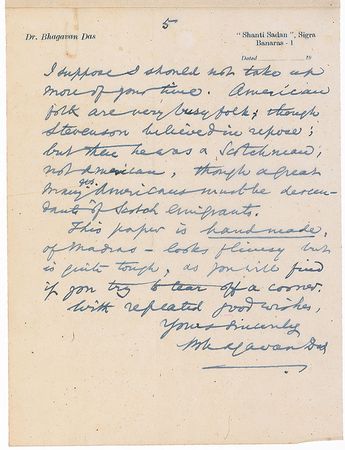 5
Dr. Bhagavan Das
"Shanti Sadan", Sigra
Banaras - 1
Dated 19
I suppose I should not take up
more of your time. American
folk are very busy folk; though
Stevenson believed in repose;
but then he was a Scotchman,
not American, though a great
many Americans must be descen-
dants of Scotch emigrants.
This paper is hand made,
of Madras - looks flimsy but
is quite tough, as you will find
if you try to tear off a corner.
With repeated good wishes,
Yours sincerely
Bhagavan Das